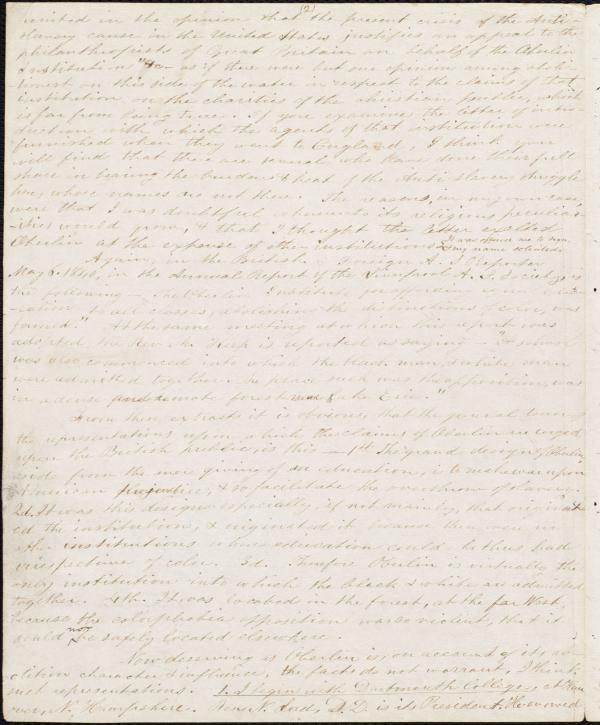 (2)
united in the opinion that the present crisis of the Anti-
slavery cause in the United States justifies an appeal to the
philanthropists of Great Britain on behalf of the Oberlin
Institution "&c— as if there were but one opinion among abol-
tionists on this side of the water in respect to the claims of that
institution on the charities of the christian public, which
is far from being true. If you examine the letter of intro-
duction with which the agents of that institution were
furnished when they went to England, I think you
will find that there are several who have done their full
share in bearing the burden & heat of the Anti slavery struggle
here, whose names are not there. The reasons, in my own case,
were that I was doubtful whereunto its religious peculiar-
ities would grow, & that I thought the letter exalted
Oberlin at the expense of other institutions.
It was offered me to sign,
my name
Again, in the British Foreign A. S Reporter
May 6. 1840, in the Annual Report of the Liverpool A. S. Society is
the following— The Oberlin Institute
to all classes, abolishing the distinctions of color, was
formed." At the same meeting at which this report was
adopted, the Rev. Mr Keep is reported as saying—
was also commenced into which the black man, & white man
were admitted together. The place such was the opposition, was
in a dense and remote forest near Lake Erie."
From these extracts it is obvious, that the general tenor of
the representations upon which the claims of Oberlin are urged
upon the British public, is this— 1st The grand design of Oberlin,
aside from the mere giving of an education, is to make war upon
American prejudice, & so facilitate the overthrow of slavery.
2d. It was this design especially, if not mainly, that originat-
ed the institution, & originated it because there were no
other institutions where education could be thus had
irrespective of color. 3d. Therefore Oberlin is virtually the
only institution into which the black & white are admitted
together. 4th. It was located in the forest, at the far West,
because the colorphobia opposition was so violent, that it
could not be safely located elsewhere.
Now deserving as Oberlin is, on account of its ab-
olition character & influence, the facts do not warrant, I think,
such representations. 1. I begin with Dartmouth College, at Han-
over, N. Hampshire. Rev. N. Lord, D. D. is its President. He avowed